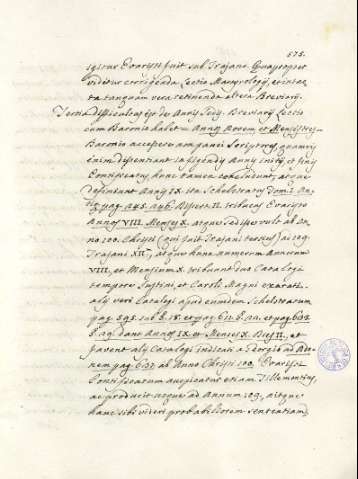 575.
igitur Evaristi fuit sub Trajano. Quapropter
videtur corrigenda Lectio Martyrologii, et intac-
ta tanquam vera retinenda altera Breviarii.
Tertia difficultas est de Annis Sedis. Breviarii Lectio
cum Baronio habet Annos Novem, et Menses tres.
Baronio accepere non pauci Scriptores, quamvis
enim dissentiant in figendis Annis initii, et finis
Pontificatus, hunc tamen absolvunt, atque
definiunt Annis IX. ita Schelstratus Tom. 2. An-
tiq. pag. 245. 246. Assert II. tribuens Evaristo
Annos VIII. Menses X. atque sedisse vult ab An-
no 100. Christi (qui fuit Trajani tertius) ad
Trajani XII., atque hunc numerum Annorum
VIII. et Mensium X. tribuunt duo Catalogi
tempore Justini, et Caroli Magni exarati.
alii vero Catalogi apud eundem Schelstratum
pag. 595. sub §. 18. et pag. 611. §. 20. et pag. 632.
§. 29. dant Annos IX. et Menses X. Dies II., et
favent alii Catalogi indicati a Georgio ad Ado-
nem pag. 637. ab Anno Christi 100. Evaristi
Pontificatum auspicatur etiam Tillemontius,
ac producit usque ad Annum 109., aitque
hanc sibi videri probabiliorem sententiam,